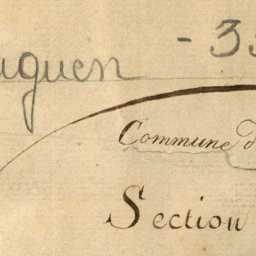 uguen - 3
Commune d
Section